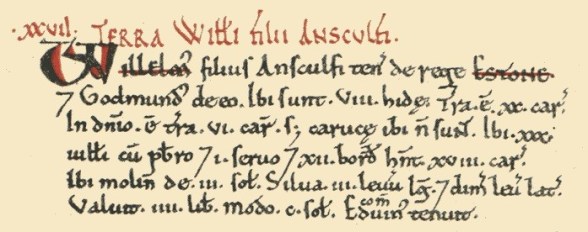 .XXVII. TERRA Willi filii Ansculfi.
Willelm' filius Ansculfi ten' de rege Estone.
7 Godmund' de eo. Ibi sunt .viii. hidę. Tra. ē .xx. car'.
In dnio. ē tra .vi. car'. s; carucę ibi n̄ sunt. Ibi .xxx.
uilli cū pbro 7 i. seruo 7 xii. bord' hnt .xviii. car'.
Ibi molin' de .iii. sol'. Silua .iii. leuu' lg' 7 dim' leu' lat'.
Valuit .iiii. lib'. modo .c. sol'. Eduin' com' tenuit.